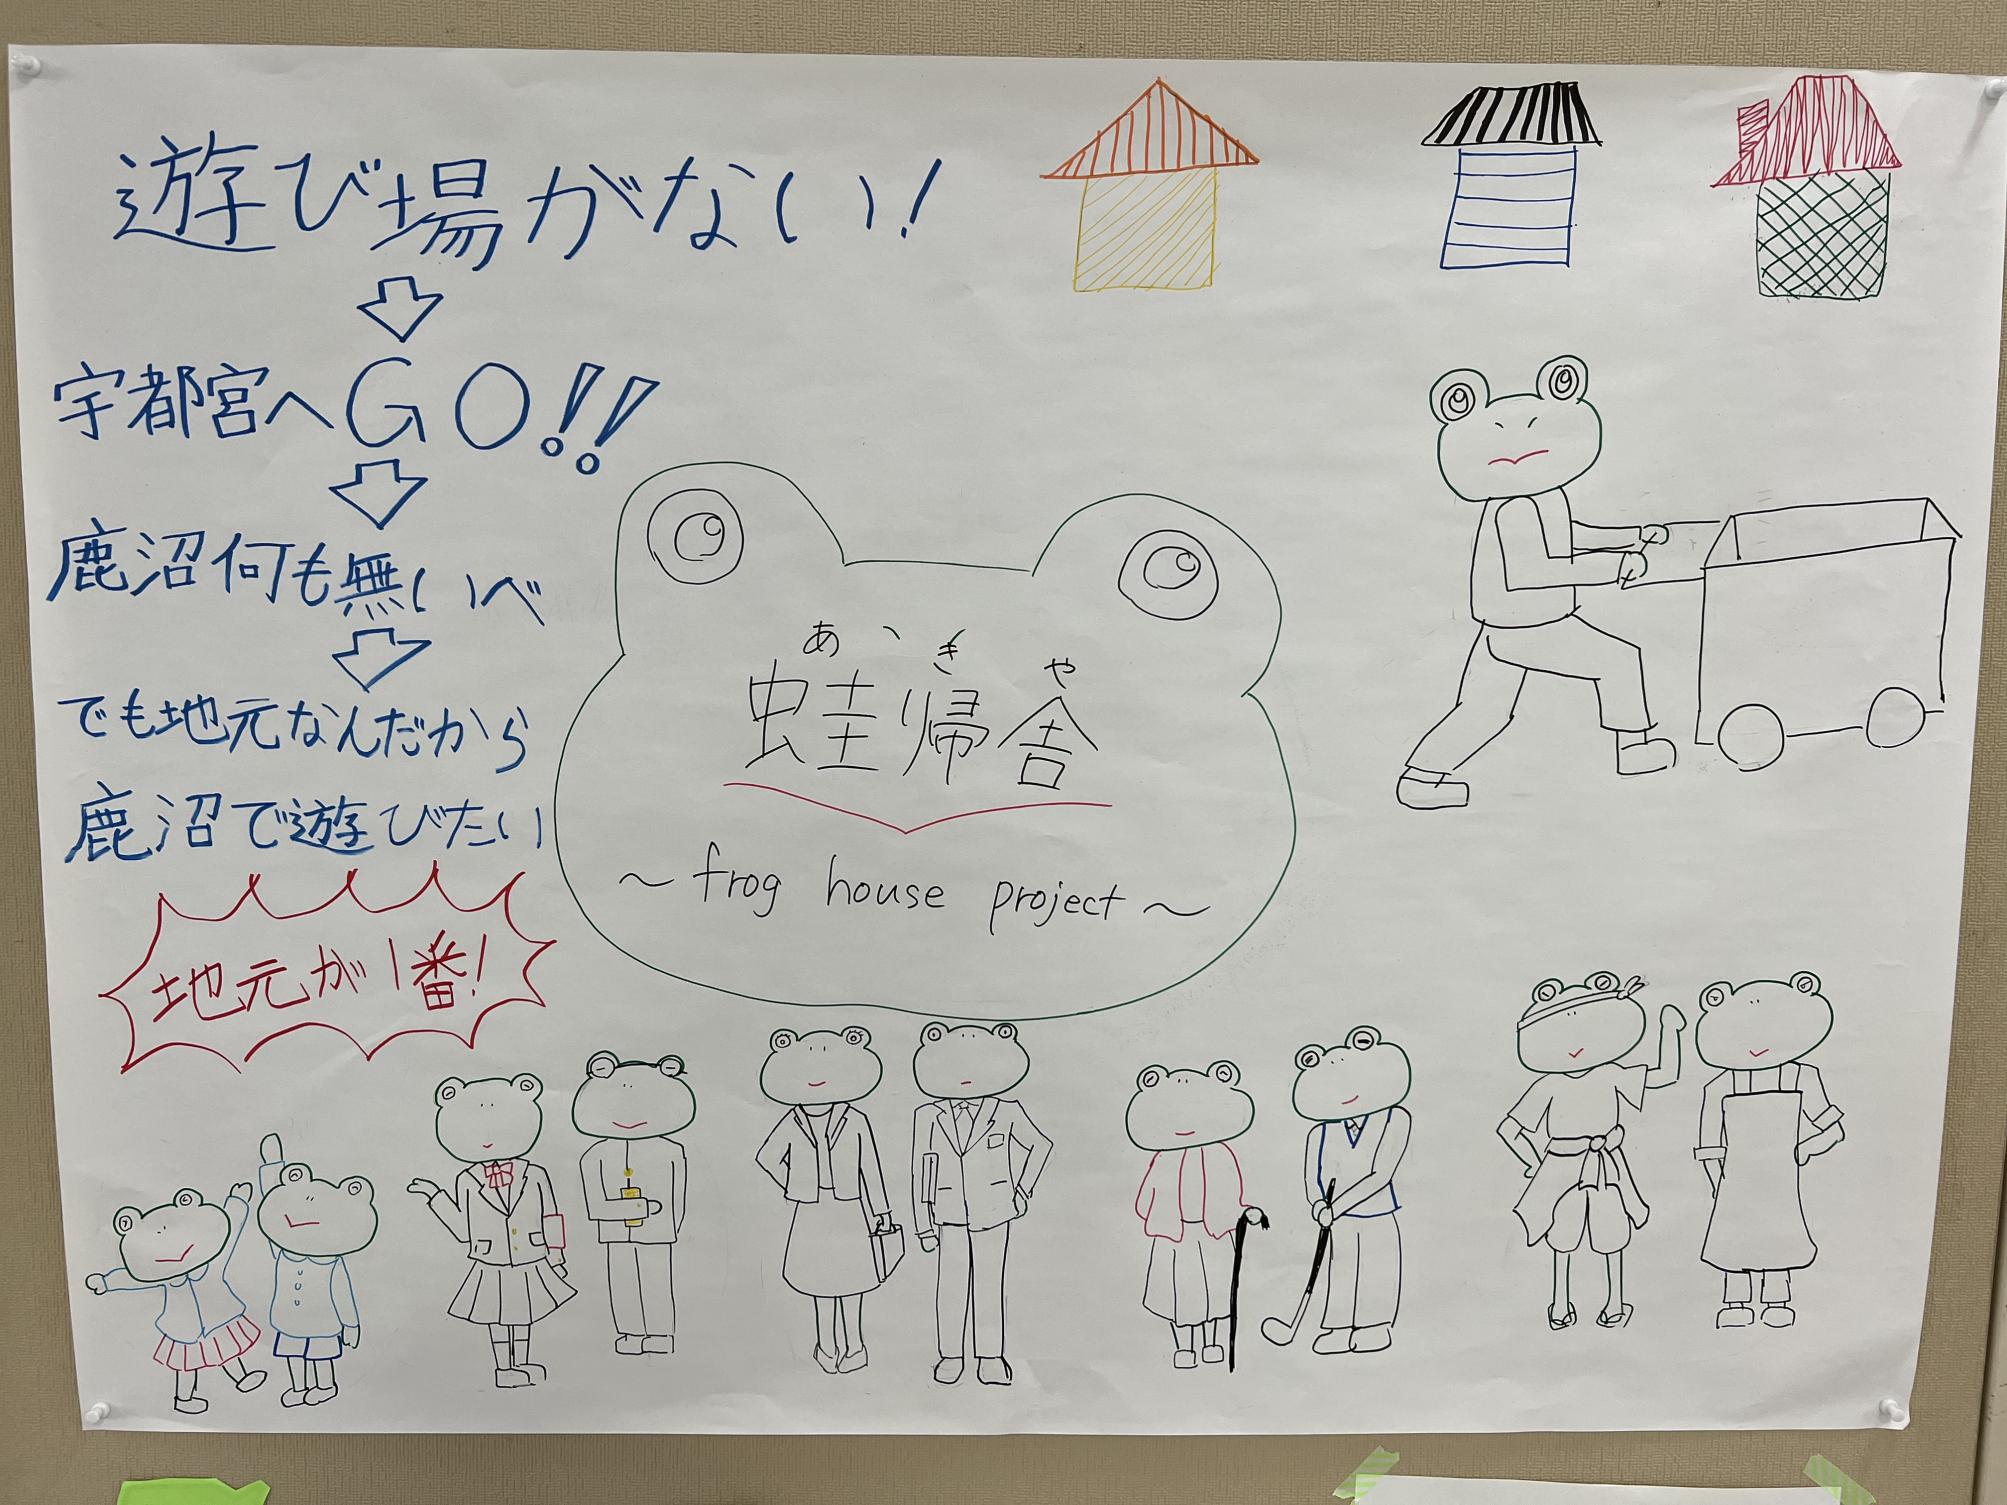 遊び場がない!
宇都宮へGO!!
鹿沼何も無いべ
でも地元なんだから
鹿沼で遊びたい
地元が1番!
あゝきや
蛙帰舎
~frog house project~